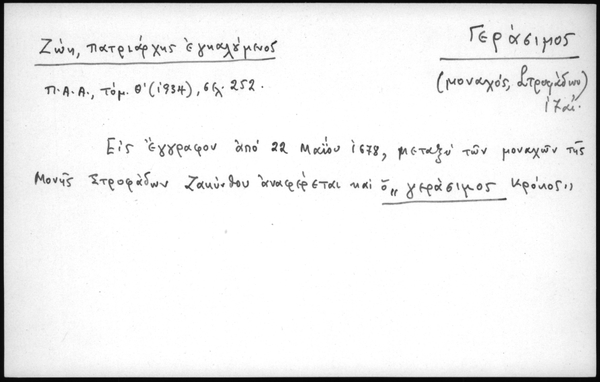 Ζώη, πατριάρχης ἐγκαλούμενος
Γεράσιμος
Π.Α.Α., τόμ. Θ' (1934), σελ. 252.
(μοναχός, Στροφάδων)
17 αἰ.
Εἰς ἔγγραφον ἀπό 22 Μαΐου 1678, μεταξύ τῶν μοναχῶν τῆς
Μονῆς Στροφάδων Ζακύνθου ἀναφέρεται καί ὁ „γεράσιμος Κρόκος„